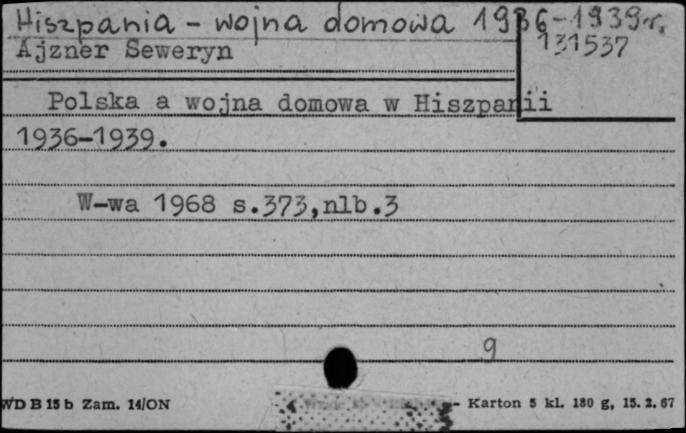 Hiszpania - wojna domowa 1936-1939r.
131537
Ajzner Seweryn
Polska a wojna domowa w Hiszpanii
1936-1939.
W-wa 1968 s.373,nlb.3
9
WD B 15 b Zam. 14/ON
- Karton 5 kl. 180 g, 15. 2. 67